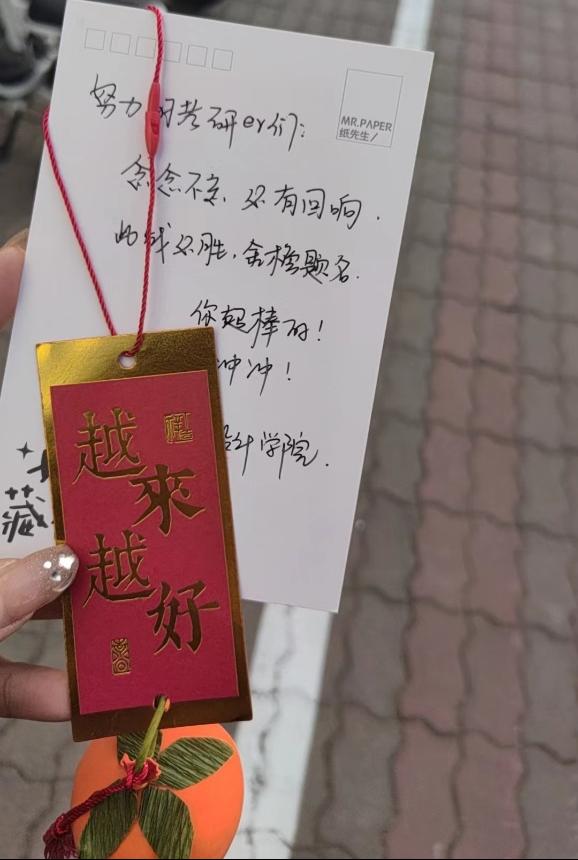 MR.PAPER
纸先生/
努力的考研er们:
念念不忘,必有回响.
此战必胜,金榜题名.
你超棒的!
冲冲!
设计学院.
越来越好
藏